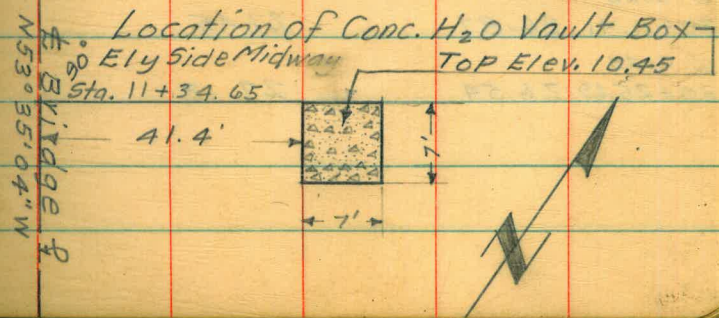 Location of Conc. H₂O Vault Box
Ely Side Midway
Top Elev. 10.45
Sta. 11+34.65
90°
41.4'
7'
7'
℄ Bridge
N53°35'04"W